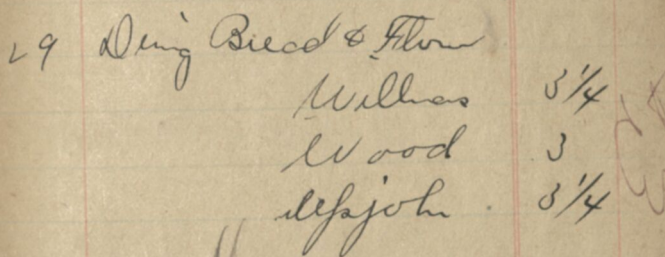 29 Deing Bread & Flour
Willmas 3 1/4
Wood 3
Upjohn 3 1/4